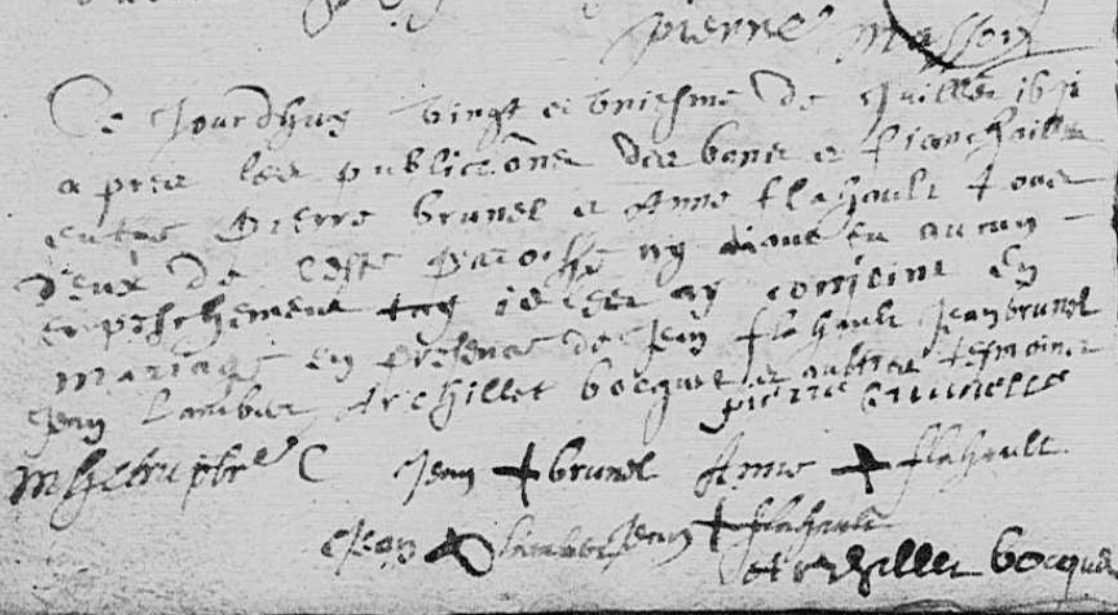 pierre masson
Ce Jourdhuy vingt et vniesme de Juillet 1671
apres les publicaōns des bans et fiansailles
entre Pierre brunel et Anne flahault tous
deux de ceste paroisse ny aiant eu aucun
enpeschement ie les ay conjoint en
mariage en presence de Jean flahault Jean brunel
Jean Lambert Archillet bocquet et aultres tesmoins
pierre brunelle
pbre C Jean + brunel Anne + flahault
Jean Lambert Jean + flahault
Archillet bocquet